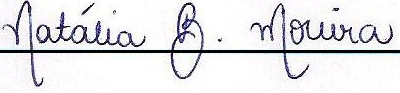 Natália B. Moreira